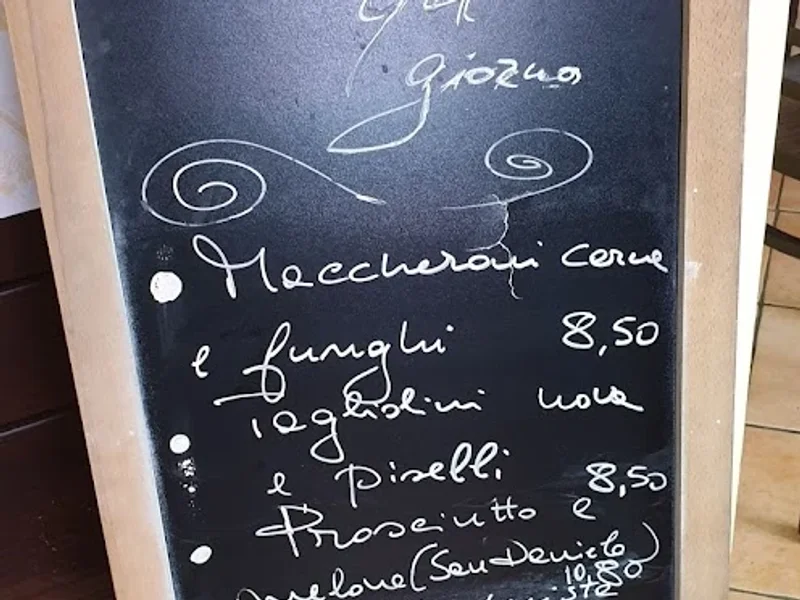 del
giorno
Maccheroni carne
e funghi 8,50
Tagliolini nova
e piselli 8,50
Prosciutto e
melone (San Daniele)
10,80